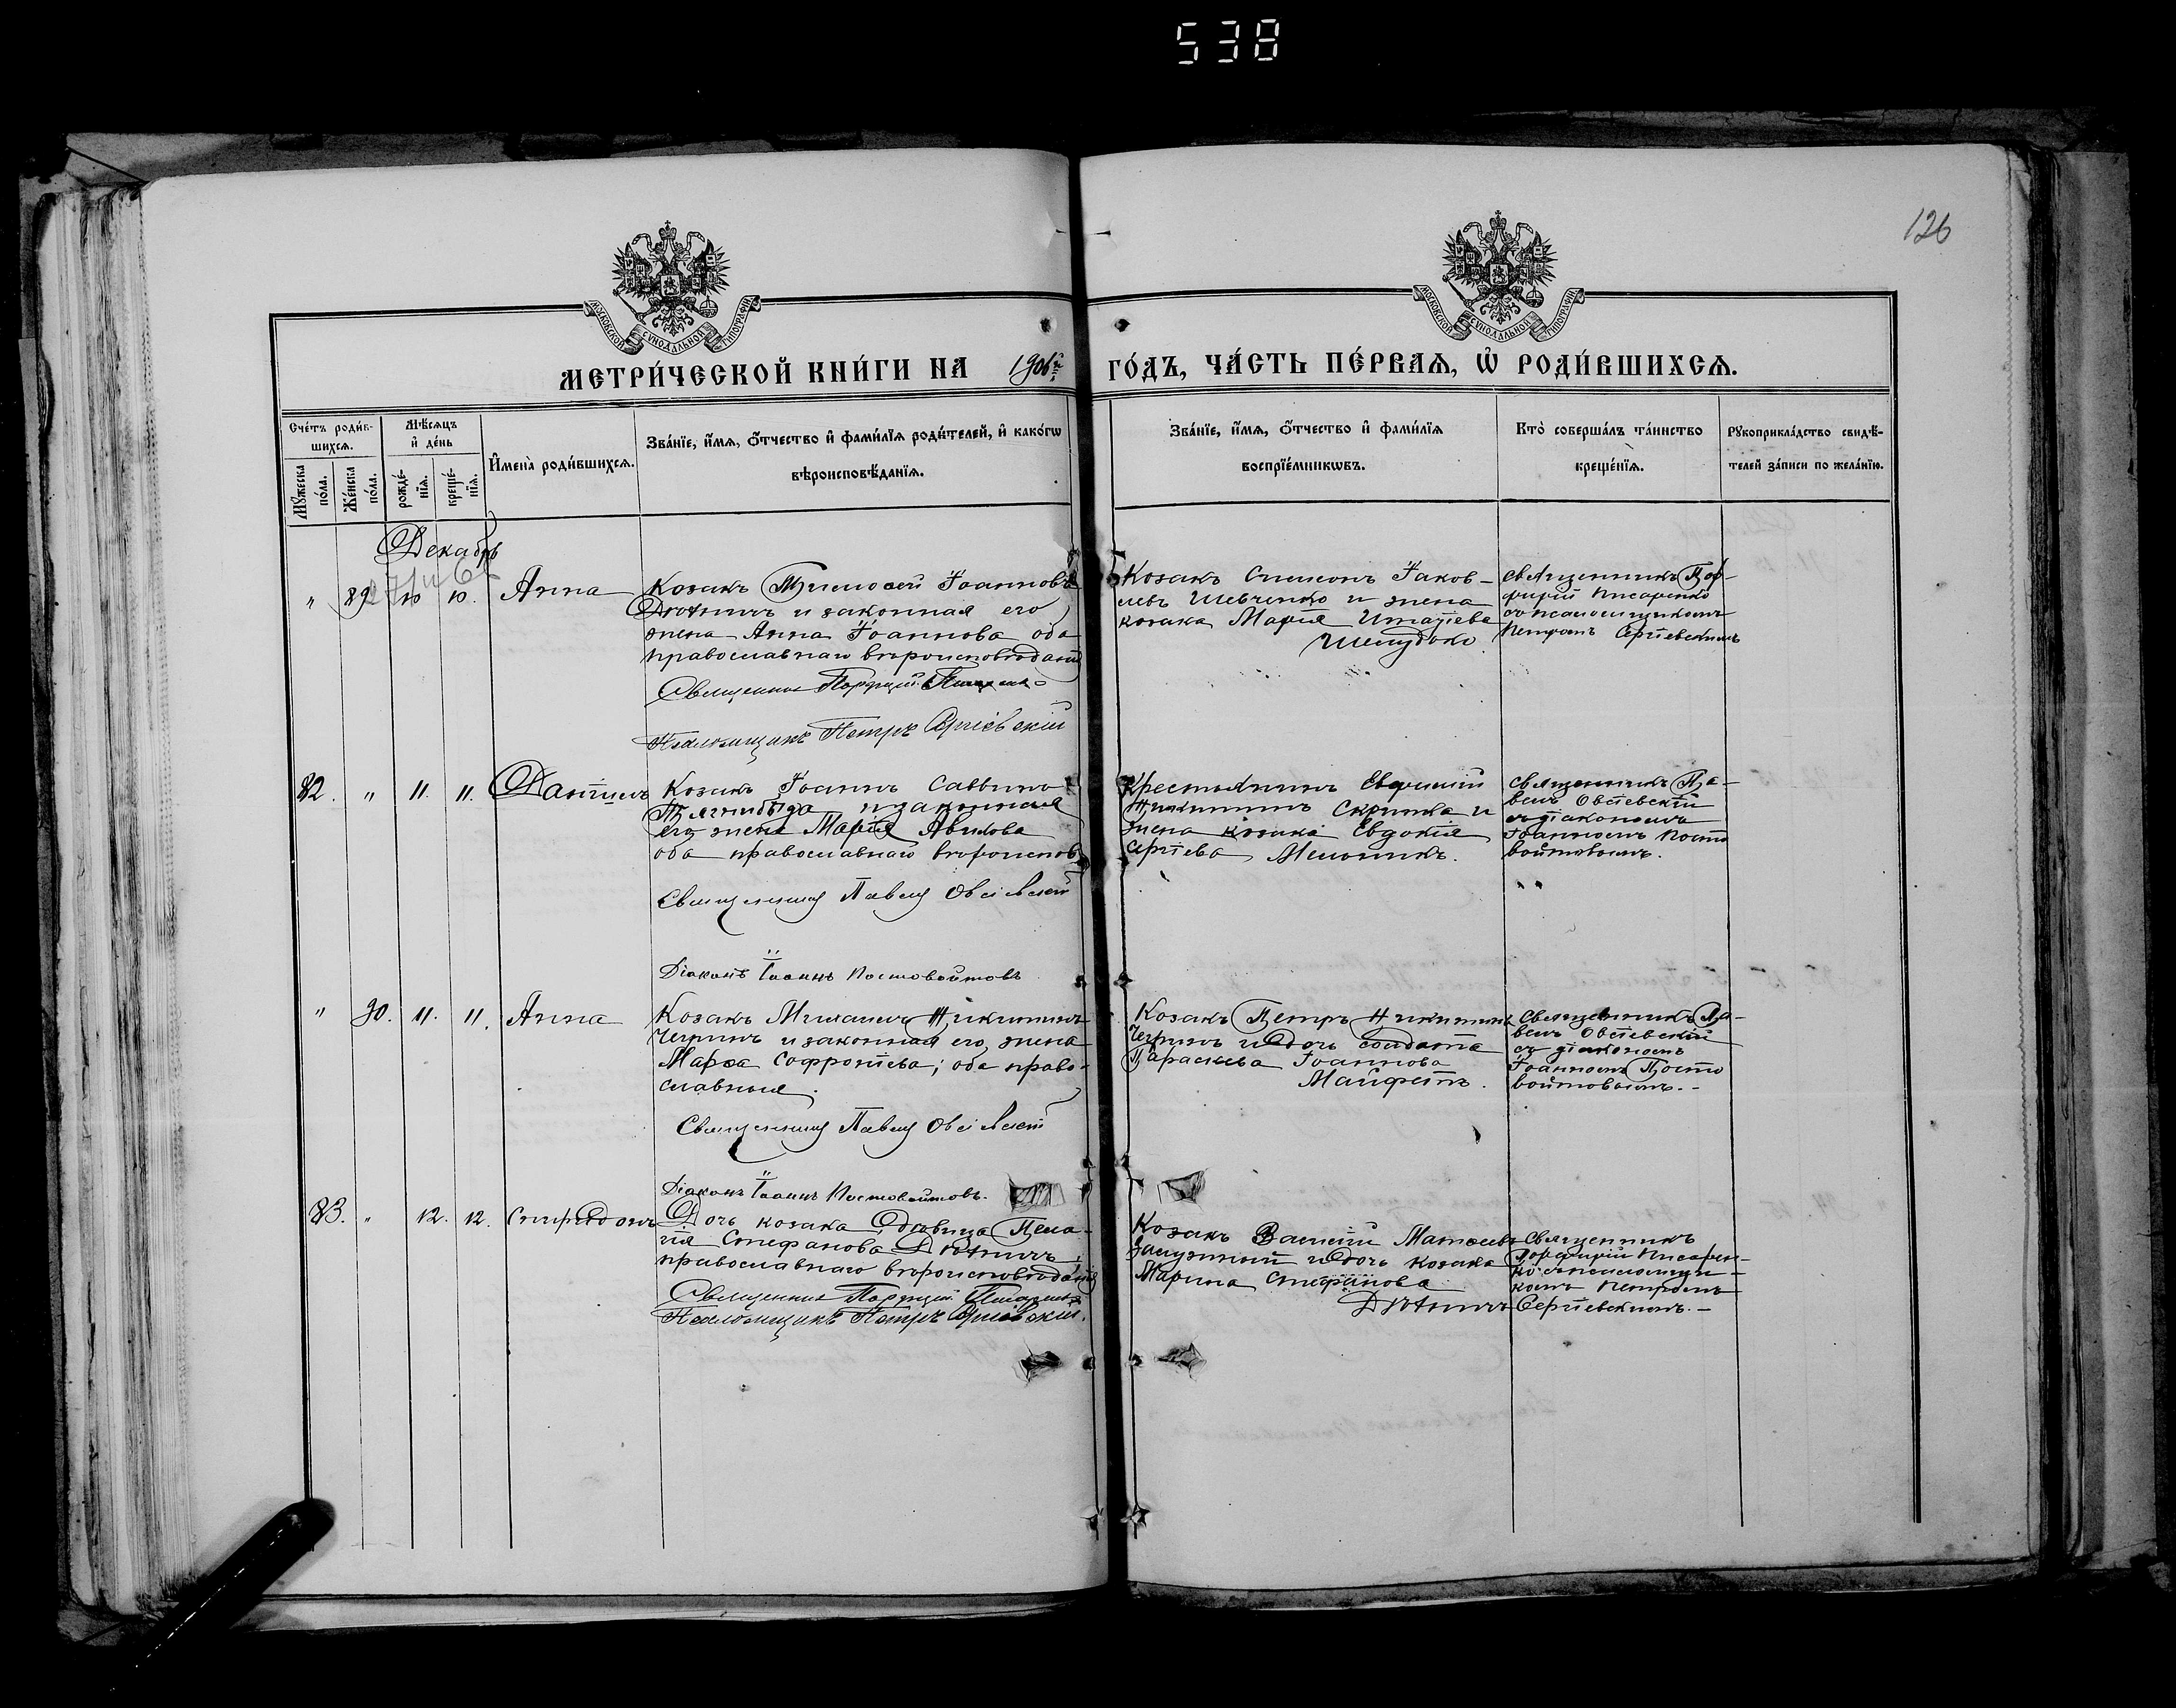 538
126
МОСКОВСКОЙ СѴНОДАЛЬНОЙ ТИПОГРАФІИ
МОСКОВСКОЙ СѴНОДАЛЬНОЙ ТИПОГРАФІИ
МЕТРИ́ЧЕСКОЙ КНИ́ГИ НА 1906й ГО́ДЪ, ЧА́СТЬ ПЕ́РВАѦ, Ѡ҆ РОДИ́ВШИХСѦ.
Сче́тъ роди́в-
шихся.
Мꙋжеска по́ла.
Же́нска по́ла.
Мѣ́сяцъ и҆ де́нь
рожде́-нїя.
креще́-нїя.
И҆мена̀ роди́вшихсѧ.
Зва́нїе, и҆́мѧ, ѻ҆́тчество и҆ фами́лїѧ роди́телей, и҆ како́гѡ
вѣроисповѣ́данїѧ.
Зва́нїе, и҆́мѧ, ѻ҆́тчество и҆ фами́лїѧ
воспрїе́мникѡвъ.
Кто̀ соверша́лъ та́инство
креще́нїѧ.
Рꙋкоприкла́дство свидѣ́-
телей за́писи по жела́нїю.
Декабрь
" 89 10 10. Анна
Козакъ Тимоѳей Іоанновъ
Дютинъ и законная его
жена Анна Іоаннова оба
православнаго вѣроисповѣданія
Священникъ Порфирій Писаренко
Псаломщикъ Петръ Сергіевскій
Козакъ Симеонъ Іаков-
левъ Шевченко и жена
козака Марія Игнатіева
Шелудько
Священникъ Пор-
фирій Писаренко
съ псаломщикомъ
Петромъ Сергіевскимъ
82. " 11. 11. Даніилъ
Козакъ Іоаннъ Саввинъ
Тягнибѣда и законная
его жена Марія
оба православнаго вѣроиспов.
Священникъ Павелъ Овсіевскій
Діаконъ Іоаннъ Постовойтовъ
Крестьянинъ Евѳимій
Никитинъ Скрипка и
жена козака Евдокія
Сергіева Мельникъ.
Священникъ Па-
велъ Овсіевскій
съ діакономъ
Іоанномъ Посто
войтовымъ.
" 90. 11. 11. Анна
Козакъ Михаилъ Никитинъ
Чепринъ и законная его жена
Марѳа Софроніева; оба право-
славные.
Священникъ Павелъ Овсіевскій
Діаконъ Іоаннъ Постовойтовъ.
Козакъ Петръ Никитинъ
Чепринъ и дочь солдата
Параскева Іоаннова
Священникъ Па-
велъ Овсіевскій
съ діакономъ
Іоанномъ Посто
войтовымъ. -
83. " 12. 12. Спиридонъ
Дочь козака дѣвица Пела-
гія Стефанова Дютинъ,
православнаго вѣроисповѣданія
Священникъ Порфирій Писаренко
Псаломщикъ Петръ Сергіевскій.
Козакъ Василій Матѳеевъ
и дочь козака
Марина Стефанова
Дютинъ
Священникъ
Порфирій Писарен-
ко съ псаломщи-
комъ Петромъ
Сергіевскимъ. -